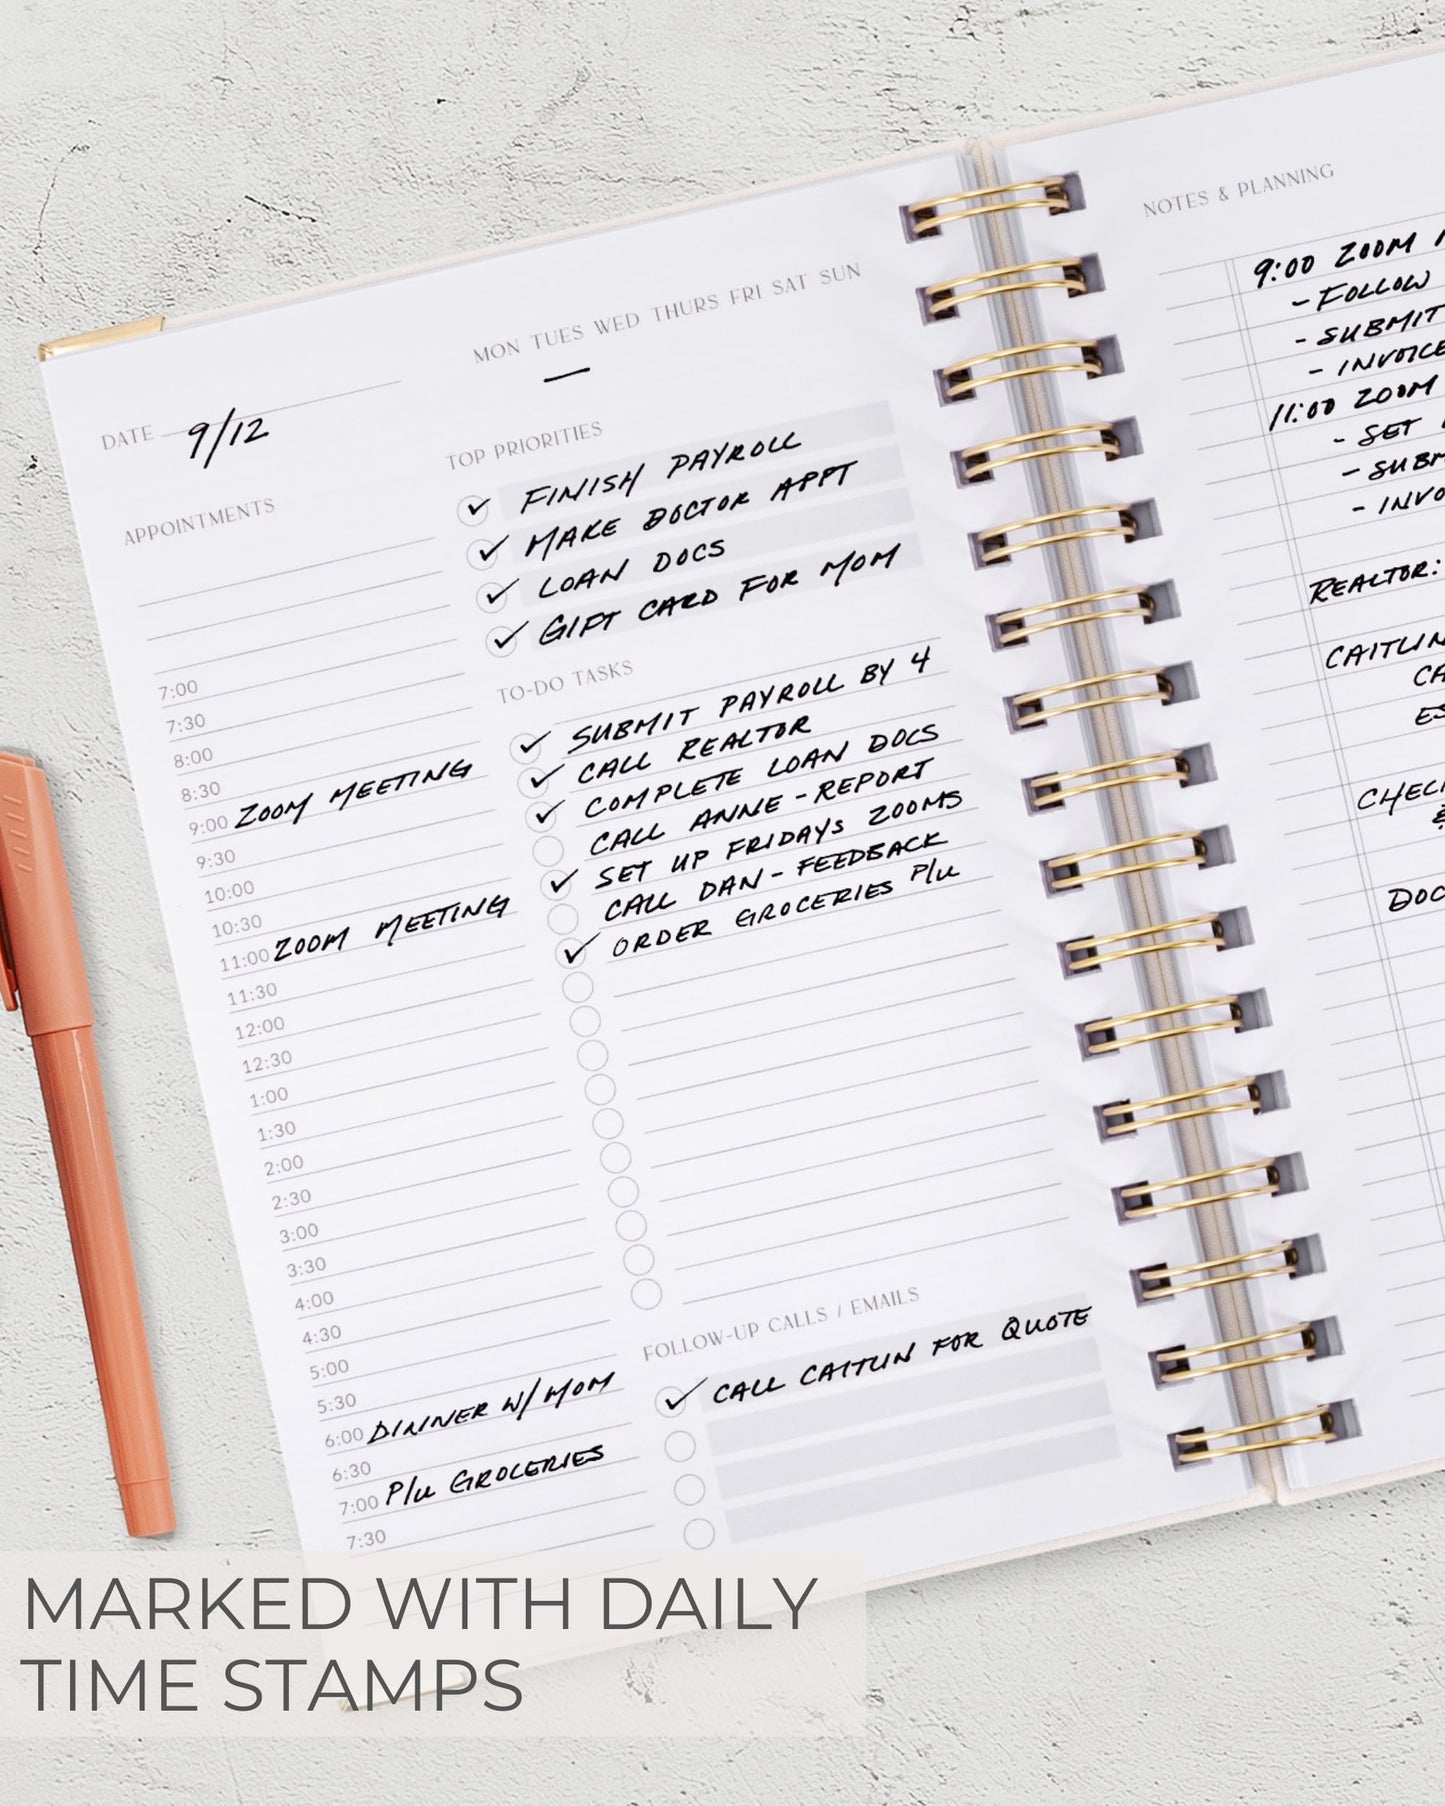 MON TUES WED THURS FRI SAT SUN
DATE 9/12
APPOINTMENTS
7:00
7:30
8:00
8:30
9:00 ZOOM MEETING
9:30
10:00
10:30
11:00 ZOOM MEETING
11:30
12:00
12:30
1:00
1:30
2:00
2:30
3:00
3:30
4:00
4:30
5:00
5:30
6:00 DINNER W/ MOM
6:30
7:00 P/U GROCERIES
7:30
TOP PRIORITIES
FINISH PAYROLL
MAKE DOCTOR APPT
LOAN DOCS
GIFT CARD FOR MOM
TO-DO TASKS
SUBMIT PAYROLL BY 4
CALL REALTOR
COMPLETE LOAN DOCS
CALL ANNE - REPORT
SET UP FRIDAYS ZOOMS
CALL DAN - FEEDBACK
ORDER GROCERIES P/U
FOLLOW-UP CALLS / EMAILS
CALL CAITLIN FOR QUOTE
NOTES & PLANNING
9:00 ZOOM
- FOLLOW
- SUBMIT
- INVOICE
11:00 ZOOM
- SET
- SUBM
- INVO
REALTOR:
CAITLIN
CA
ES
CHECK
&
DOC
MARKED WITH DAILY
TIME STAMPS